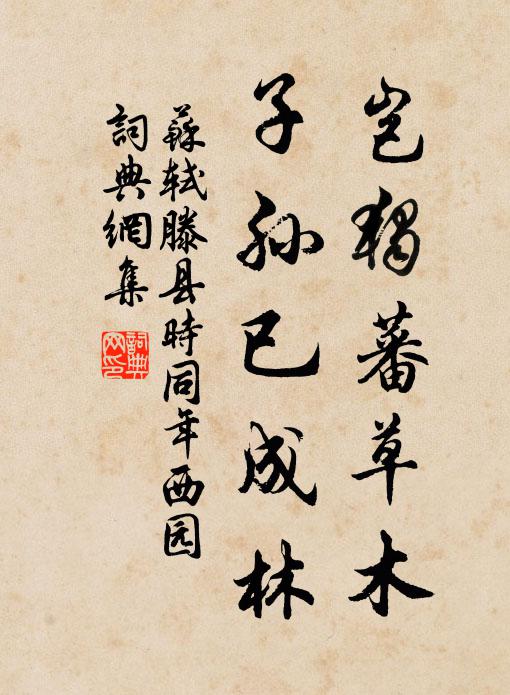 岂独蕃草木
子孙已成林
蘇軾滕县時同年西园
詞典網集
詞典网印